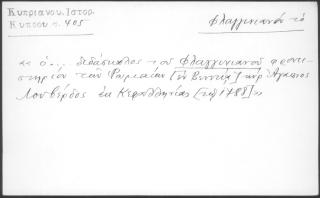 Κυπριανου. Ιστορ.
Κυπρου σ. 405
Φλαγγινιανόν το
« ὁ... διδάσκαλος τοῦ Φλαγγινιανοῦ φροντι-
στηρίου τῶν Ρωμαίων [ἐν Βενετίᾳ] κύρ Ἀγάπιος
Λοβέρδος ἐκ Κεφαλληνίας [τῷ 1788] »